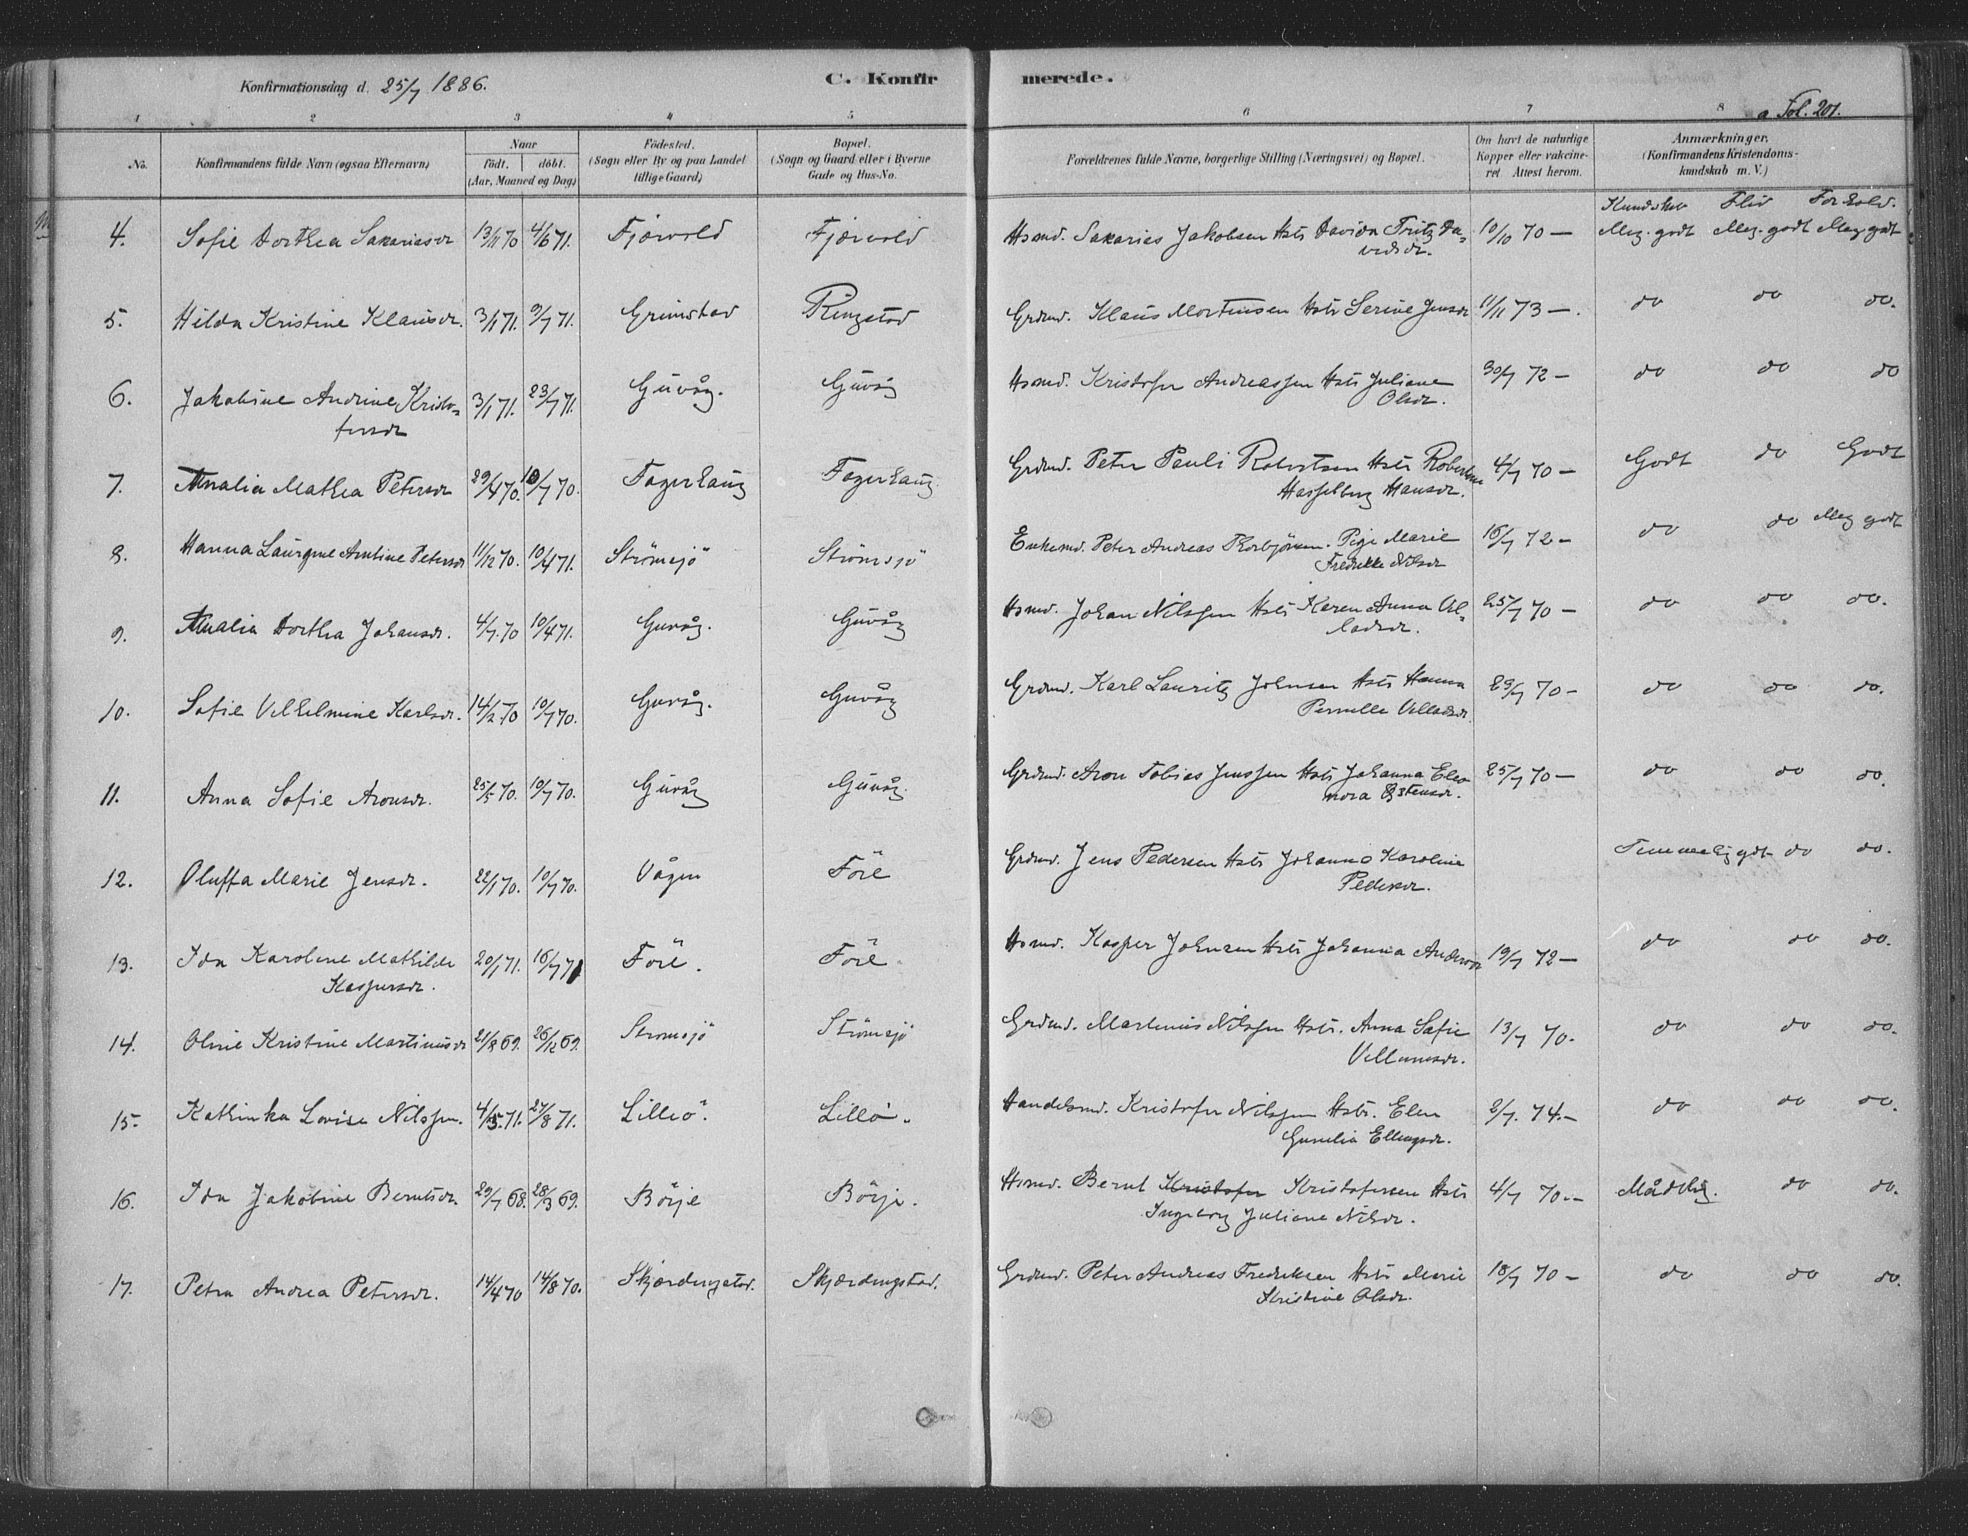 Konfirmationsdag d. 25/7 1886.
C. Konfir merede.
a Fol. 201.
1 2 3 4 5 6 7 8
No.
Konfirmandens fulde Navn (ogsaa Efternavn)
Naar
födt. döbt.
(Aar, Maaned og Dag)
Födested.
(Sogn eller By og paa Landet
tillige Gaard)
Bopæl.
(Sogn og Gaard eller i Byerne
Gade og Hus-No.
Forældrenes fulde Navne, borgerlige Stilling (Næringsvei) og Bopæl.
Om havt de naturlige
Kopper eller vakcine-
ret Attest herom.
Anmærkninger.
(Konfirmandens Kristendoms-
kundskab m. V.)
Kundskab Flid Forhold.
4. Sofie Dorthea Sakariasdr 13/11 70 4/6 71. Fjærvold Fjærvold Hsmd. Sakarias Jakobsen Hstr Davida Fritz Da-
vidsdr. 10/10 70 — Meg. godt Meg. godt Meg godt
5. Hilda Kristine Klausdr. 3/1 71. 9/7 71. Grimstad Ringstad Grdmd. Klaus Mortensen Hstr Serine Jensdr 11/11 73 —. do do do.
6. Jakobine Andrine Kristo-
fersdr 3/1 71. 23/7 71. Guvåg. Guvåg Hsmd. Kristofer Andreassen Hstr Juliane
Olsdr. 30/7 72 — do do do
7. Amalia Mathea Petersdr 29/4 70. 10/7 70. Fagerhaug Fagerhaug. Grdmd. Peter Pauli Robertsen Hstr
Hasselberg Hansdr. 4/7 70 — Godt do Godt
8. Hanna Antine Petersdr 11/12 70. 10/4 71. Strömsjö Strömsjö Enkemd. Peter Andreas Thorbjörnsen. Pige Marie
Fredrikke Nilsdr 16/7 72 — do do Meg godt
9. Amalia Dorthea Johansdr. 4/7 70 10/4 71. Guvåg. Guvåg Hsmd. Johan Nilssen Hstr Karen Anna Vil-
ladsdr. 25/7 70 — do do do.
10. Sofie Vilhelmine Karlsdr. 14/2 70 10/7 70. Guvåg. Guvåg Grdmd. Karl Lauritz Johnsen Hstr Hanna
Pernille Villadsdr. 23/7 70 — do do do.
11. Anna Sofie Aronsdr. 25/5 70. 10/7 70. Guvåg Guvåg. Grdmd. Aron Tobias Jenssen Hstr Johanna Eleo
nora Östensdr. 25/7 70 — do do do.
12. Oluffa Marie Jensdr. 22/1 70. 10/7 70. Vågen Före Grdmd. Jens Pedersen Hstr Johanna Karoline
Pedersdr. Temmelig godt do do.
13. Ida Karoline Mathilde
Kaspersdr. 20/1 71. 16/7 71 Före. Före. Hsmd. Kasper Johnsen Hstr Johanna Andersdr 19/7 72 — do do do.
14. Oline Kristine Martinusdr 21/8 69. 26/12 69. Strömsjö Strömsjö Grdmd. Martinus Nilssen Hstr. Anna Sofie
Vellumsdr. 13/7 70. do do do.
15. Kathinka Lovise Nilssen. 4/5 71. 27/8 71. Lilleö. Lilleö. Handelsmd. Kristofer Nilssen Hstr. Elen
Gunelia Ellingsdr. 2/7. 74. — do do do.
16. Ida Jakobine Berntsdr. 29/7 68. 28/3 69. Börje Börje. Hsmd. Bernt Kristofer Kristofersen Hstr
Ingeborg Juliane Nilsdr. 4/7 70. — Mådelig. do do.
17. Petra Andrea Petersdr. 14/4 70 14/8 70. Skjærdingstad. Skjærdingstad. Grdmd. Peter Andreas Fredriksen Hstr Marie
Kristine Olsdr. 18/7 70 — do do do.